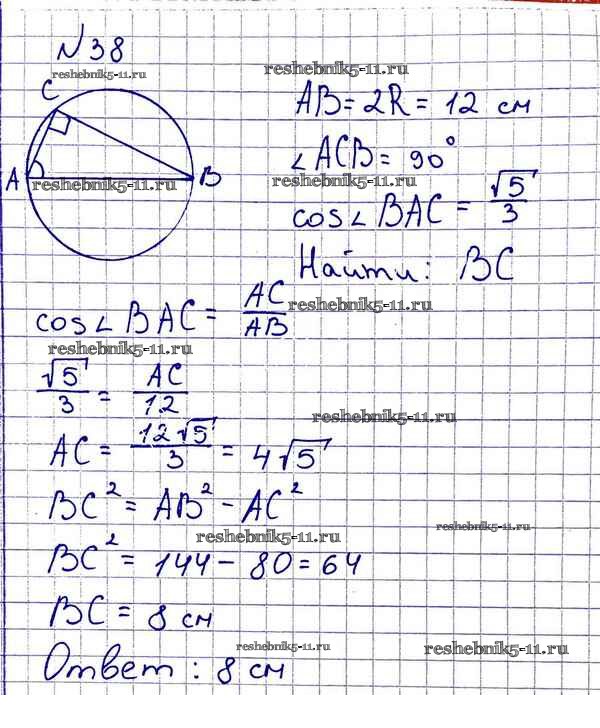 №38
reshebnik5-11.ru
reshebnik5-11.ru
C
AB = 2R = 12 см
∠ACB = 90°
A reshebnik5-11.ru B
reshebnik5-11.ru
cos∠BAC = √5/3
Найти: BC
reshebnik5-11.ru
cos∠BAC = AC/AB
reshebnik5-11.ru
√5/3 = AC/12
reshebnik5-11.ru
AC = 12√5/3 = 4√5
BC² = AB² - AC²
reshebnik5-11.ru
reshebnik5-11.ru
BC² = 144 - 80 = 64
BC = 8 см
reshebnik5-11.ru
reshebnik5-11.ru
Ответ: 8 см